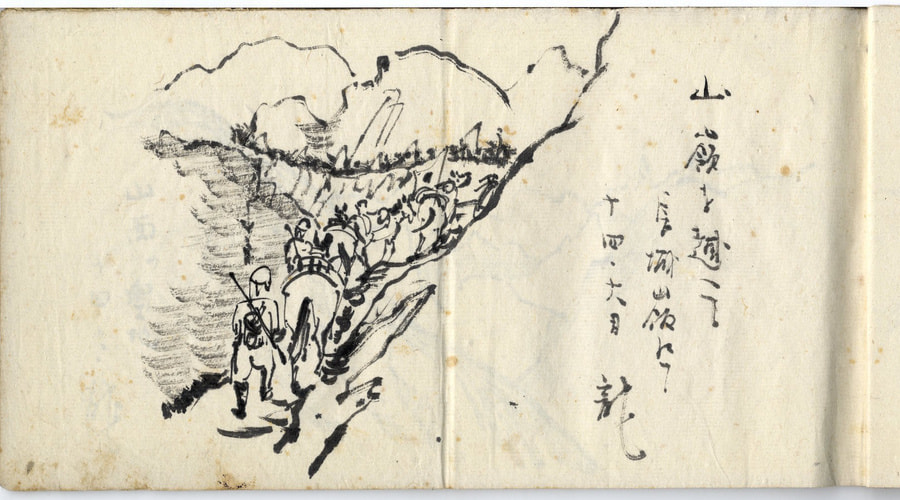 山嶺を越へて
長城山
十四・六月
龍